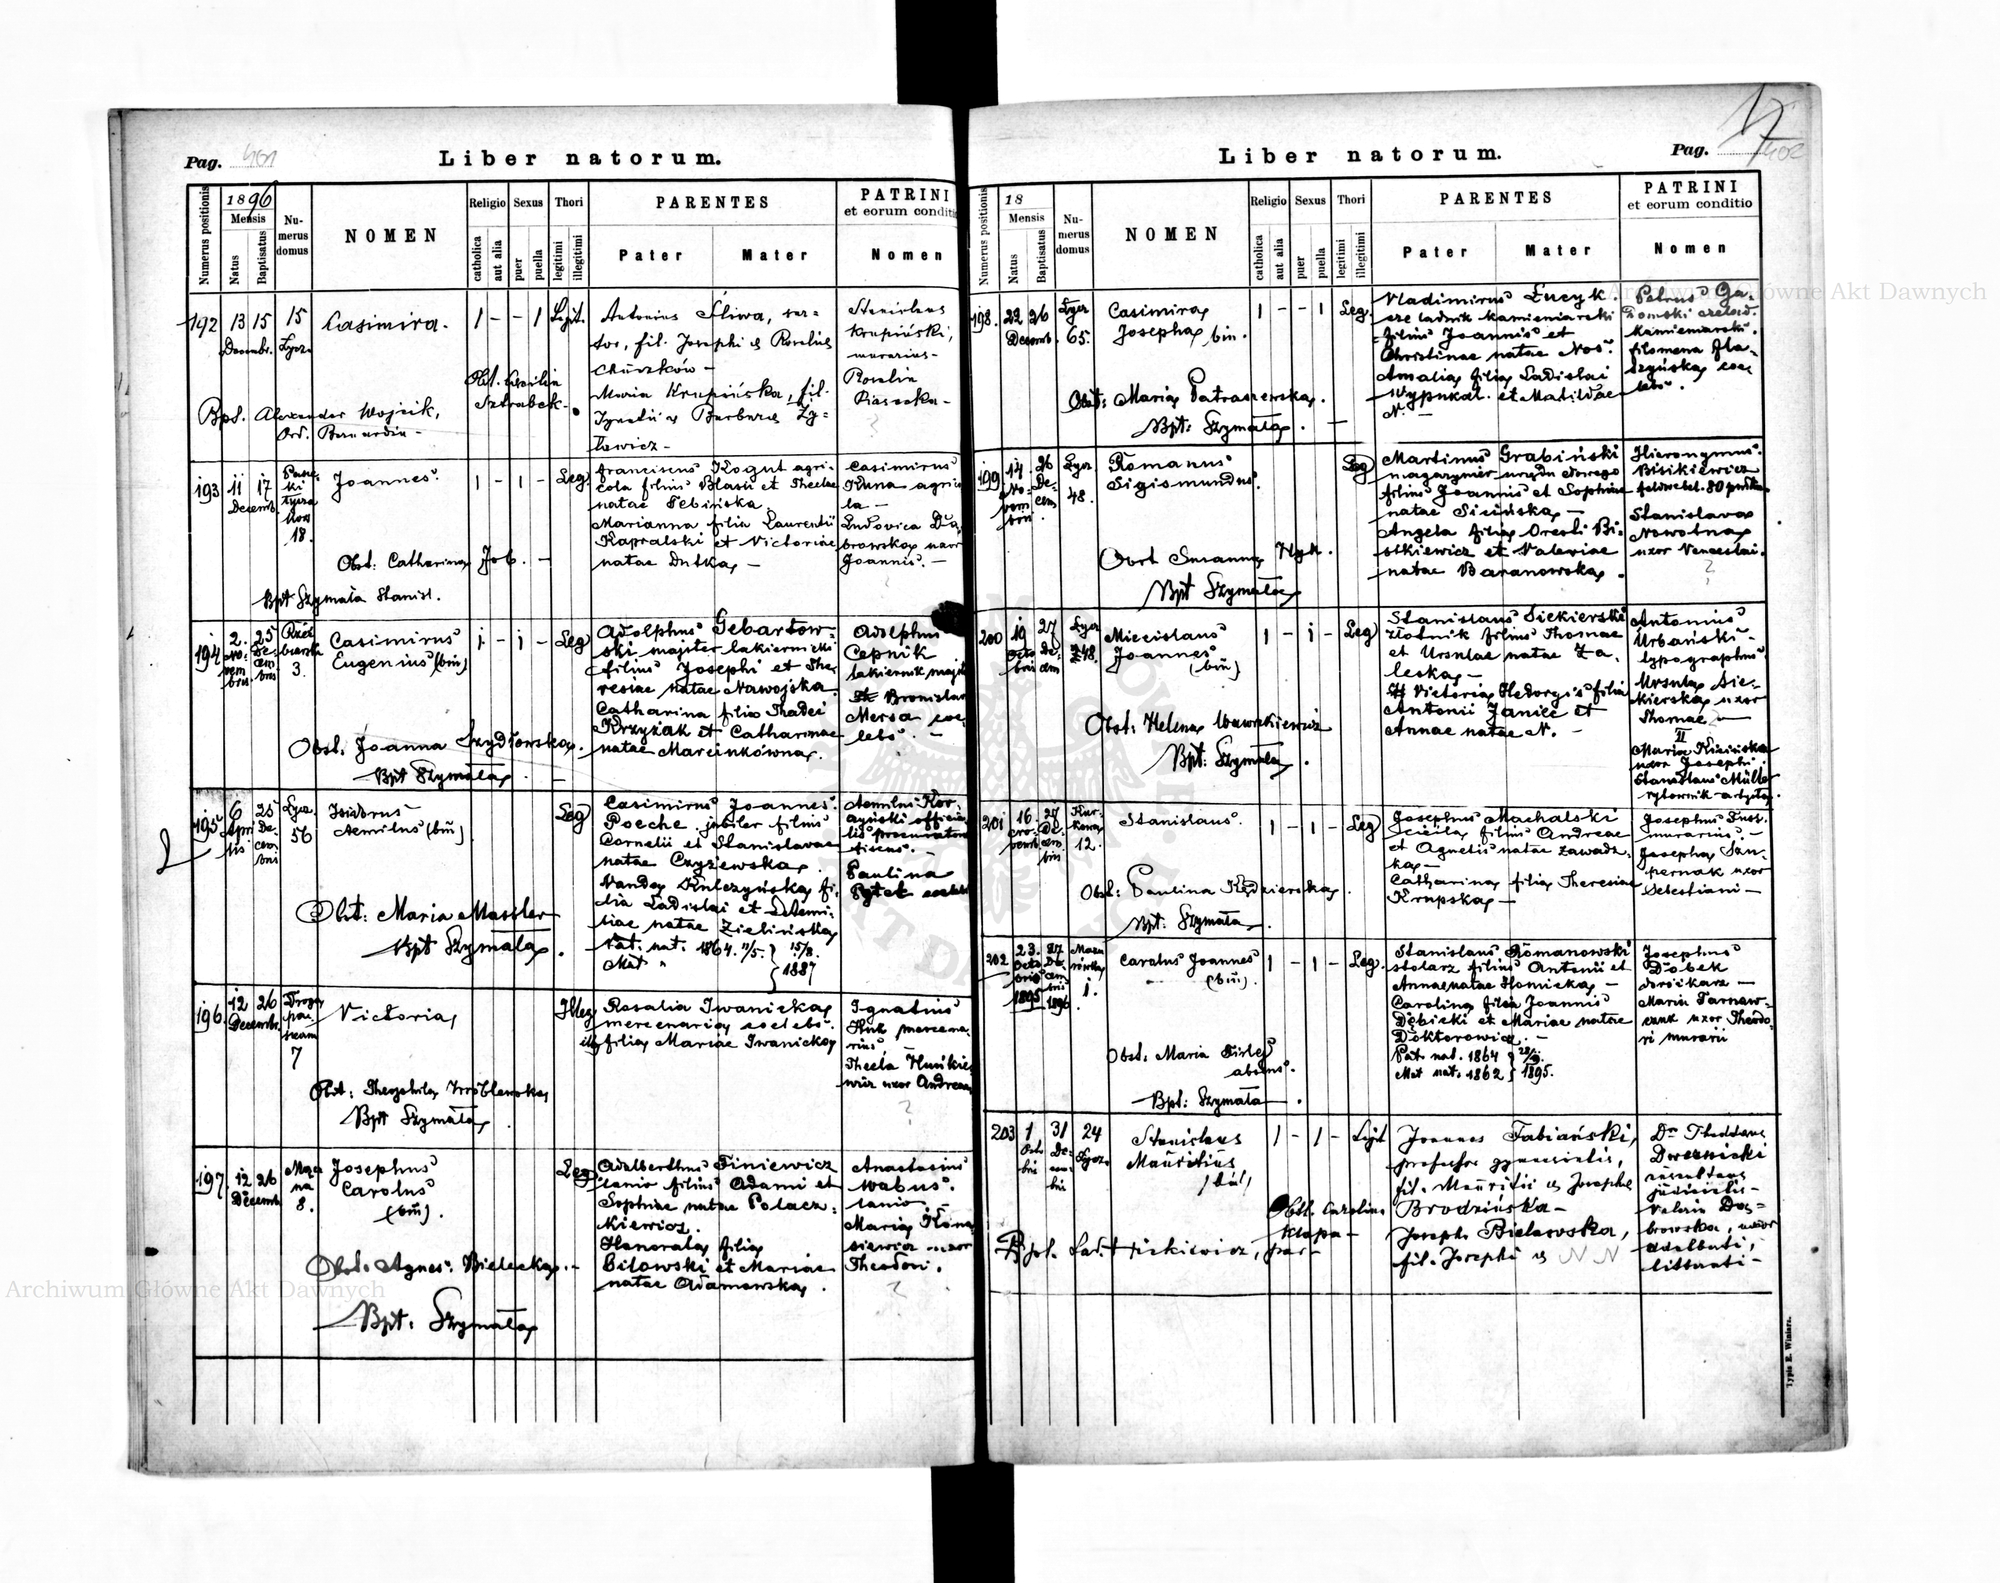 Pag. 401
Liber natorum.
Numerus positionis
1896
Mensis
Natus
Baptisatus
Nu-
merus
domus
NOMEN
Religio
catholica
aut alia
Sexus
puer
puella
Thori
legitimi
illegitimi
PARENTES
Pater
Mater
PATRINI
et eorum conditio
Nomen
192
13 15
Decembr.
15
Casimira.
1 - - 1
Antonius Śliwa, sar-
tor, fil. Josephi
Maria Krupińska, fil.
Stanislaus
Krupiński,
murarius -
Rosalia
Piasecka -
Bpt. Alexander Wojcik,
Ord. Bernardin -
193
11 17
Decemb.
18.
Joannes.
1 - 1 -
Leg
Franciscus Kogut agri-
cola filius Blasii et Theclae
natae Tebińska.
Marianna filia Laurentii
Kapralski et Victoriae
natae Dutka -
Casimirus
Kuna agrico
la -
Ludovica Dą
browska uxor
Joannis. -
Obst: Catharina Job. -
Bpt Szymała Stanisl.
194
2. 25
3.
Casimirus
Eugenius (bin)
1 - 1 -
Leg
Adolphus Gebartow-
ski majster lakiernicki
filius Josephi et The
resiae natae Nawojska
Catharina filia Thadei
Krzyżak et Catharinae
natae Marcinkówna.
Adolphus
Cepnik
lakiernik majst
Bronislava
Mersa coe
lebs. -
Obst. Joanna Szydłowska.
Bpt Szymała. -
195
6 25
Apri
lis
56
Isidorus
Aemilus (bin)
Leg
Casimirus Joannes
Poeche jubiler filius
Cornelii et Stanislavae
natae Czyżewska.
Wanda Kulczyńska fi-
lia Ladislai et
natae Zielińska
Pat. nat. 1864. 11/5. 15/8.
Mat " 1887
Paulina
Pytek
Obst: Maria Massler
Bpt Szymała.
196.
12 26
Decemb.
7
Victoria
Illeg
Rosalia Iwanicka
mercenaria coelebs.
filia Mariae Iwanicka
Ignatius
Huk mercena-
rius
Thecla
uxor Andreae
Obst: Theophila Wróblewska
Bpt Szymała
197.
12 26
Decemb
8.
Josephus
Carolus
(bin).
Leg
Adalberthus Finiewicz
lanio filius Adami et
Sophiae natae Polacz-
kiewicz.
Honorata filia
Bilowski et Mariae
natae Adamowska.
Anastasius
Wabus.
lanio -
Maria
uxor
Theodori.
Obst. Agnes. Bielecka. -
Bpt: Szymała
Liber natorum.
Pag. 402
Numerus positionis
18
Mensis
Natus
Baptisatus
Nu-
merus
domus
NOMEN
Religio
catholica
aut alia
Sexus
puer
puella
Thori
legitimi
illegitimi
PARENTES
Pater
Mater
PATRINI
et eorum conditio
Nomen
198.
22 26
Decemb.
Łycz
65.
Casimira
Josepha bin.
1 - - 1
Leg.
Vladimirus Łucyk.
czeladnik kamieniarski
filius Joannis et
Christinae natae Nos.
Amalia filia Ladislai
Wypukał. et Matildae
N. -
Petrus Ga-
domski czelad.
kamieniarski.
Filomena
coe
lebs.
Obst: Maria Patraszewska.
Bpt: Szymała. -
199
14 26
No-
vem
bris
De-
cem
Łycz
48.
Romanus
Sigismundus.
Leg
Martinus Grabiński
magazynier
filius Joannis et Sophiae
natae Sicińska -
Angela filia Oresti Bi-
sikiewicz et Valeriae
natae Baranowska.
Hieronymus
Bisikiewicz
feldwebel. 80 pułku
Stanislava
Nowotna
uxor Venceslai.
Obst Susanna Hyk.
Bpt Szymała
200
19 27
Łycz
48.
Miecislaus
Joannes
(bin)
1 - 1 -
Leg
Stanislaus Siekierski
złotnik filius Thomae
et Ursulae natae Za-
leska -
Victoria Hedvigis filia
Antonii Janiec et
Annae natae N. -
Antonius
Urbański -
typographus.
Ursula Sie-
kierska uxor
Thomae -
II
Maria
uxor Josephi
Stanislaus Müller
rytownik artysta.
Obst: Helena Wawrzkiewicz
Bpt: Szymała.
201
16. 27
12.
Stanislaus.
1 - 1 -
Leg
Josephus Machalski
cieśla filius Andreae
et Agnetis natae Zawadz-
ka -
Catharina filia Theresiae
Krupska -
Josephus
murarius. -
Josepha Szu-
pernak uxor
Sebestiani -
Obst: Paulina Kędzierska.
Bpt: Szymała.
202
23. 27
Octo
bris
1895
De
cem
bris
1896
1.
Carolus Joannes
(bin).
1 - 1 -
Leg.
Stanislaus Romanowski
stolarz filius Antonii et
Annae natae Słomicka -
Carolina filia Joannis
Dębicki et Mariae natae
Doktorowicz. -
Pat. nat. 1864
Mat nat. 1862 1895.
Josephus
Dobek
dorożkarz -
Maria Tarnaw-
uxor Theodo-
ri murarii
Obst: Maria
Bpt: Szymała.
203
1 31
24
Łycz.
Stanislaus
Mauritius,
/bin/
1 - 1 -
Joannes Fabiański,
professor gymnasialis,
fil. Mauritii
Brodzińska -
Joseph. Bielawska,
fil. Josephi N N
Dr Thaddaeus
Dwernicki
Valeria Dą-
browska, uxor
Adalberti,
litterati -
Obst. Carolina
Klapa -
Typis E. Winiarz.
Archiwum Główne Akt Dawnych
Archiwum Główne Akt Dawnych